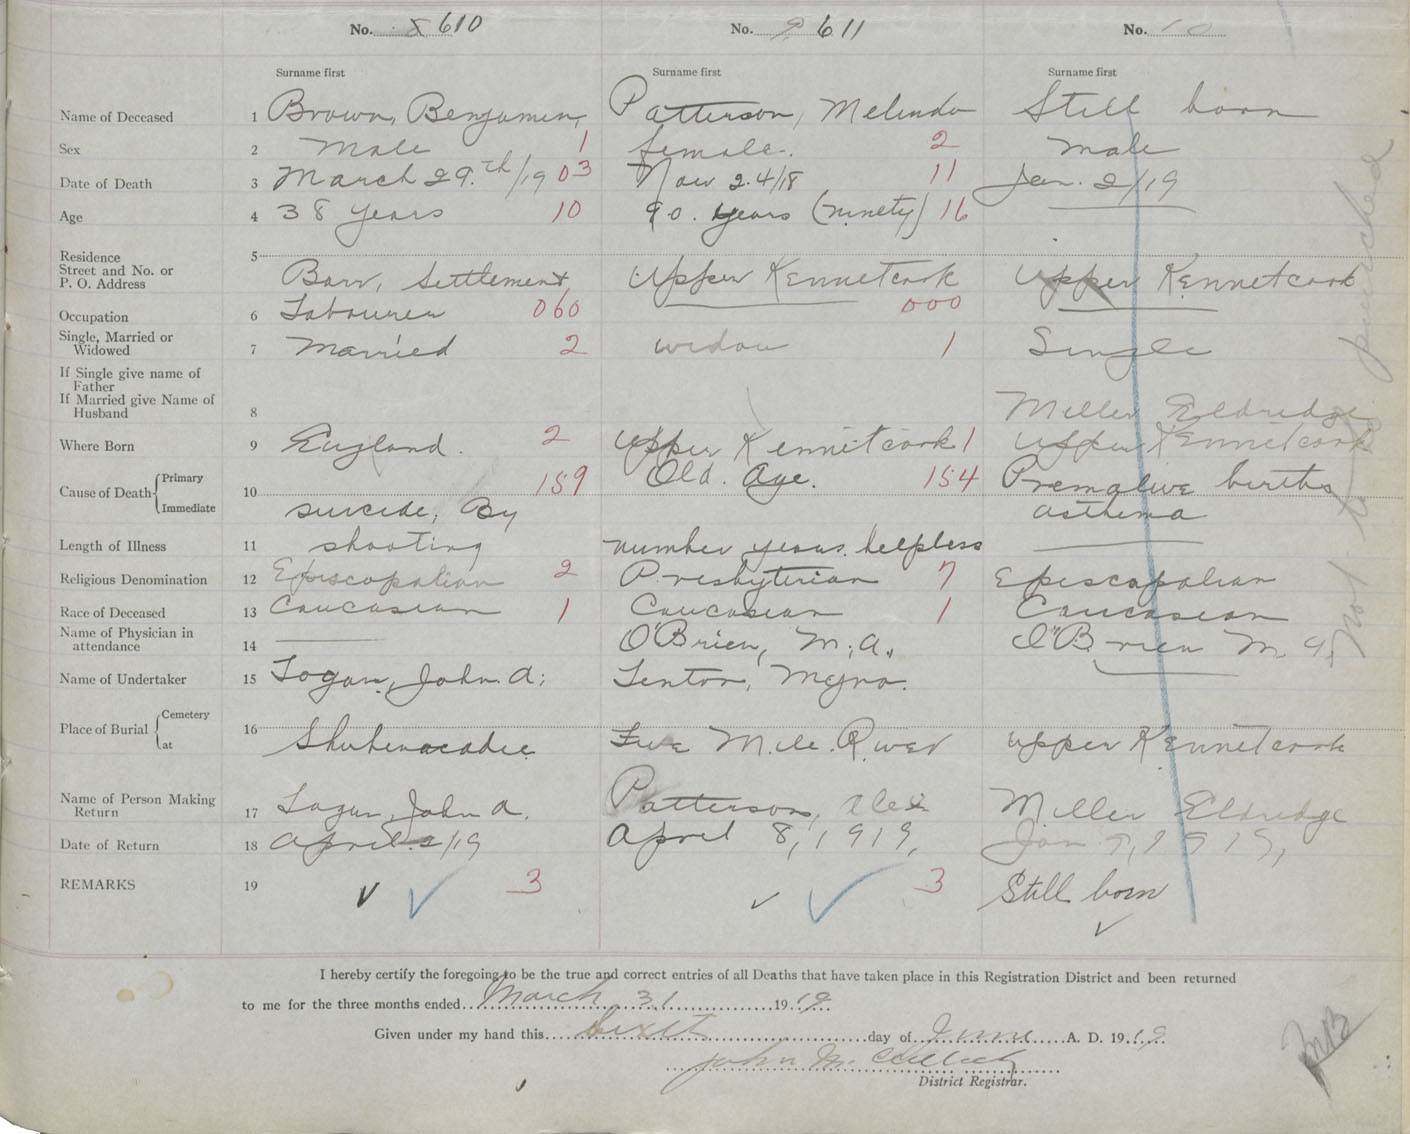 No. 8 610 No. 9 611 No. 10
Surname first Surname first Surname first
Name of Deceased 1 Brown, Benjamin, Patterson, Melinda Still born
Sex 2 Male 1 female. 2 Male
Date of Death 3 March 29.th/19 03 Nov 24/18 11 Jan. 2/19
Age 4 38 years 10 90. years (ninety) 16
Residence 5
Street and No. or
P. O. Address Barr, Settlement, Upper Kennetcook Upper Kennetcook
Occupation 6 Labourer 060 000
Single, Married or
Widowed 7 Married 2 widow 1 Single
If Single give name of
Father
If Married give Name of
Husband 8 Miller Eldredge
Where Born 9 England. 2 Upper Kennetcook 1 Upper Kennetcook
Cause of Death { Primary 10 159 Old. Age. 154 Premative births
Immediate suicide, By asthema
Length of Illness 11 shooting number years. helpless
Religious Denomination 12 Episcopalian 2 Presbyterian 7 Episcopalian
Race of Deceased 13 Caucasian 1 Caucasian 1 Caucasian
Name of Physician in
attendance 14 O'Brien, M. A. O'Brien M. A.
Name of Undertaker 15 Logan, John A;
Place of Burial { Cemetery 16
at Shubenacadie Five Mile River Upper Kennetcook
Name of Person Making
Return 17 Logan, John A. Patterson, Alex Miller Eldredge
Date of Return 18 April 2/19 April 8, 1919, Jan 9, 1919,
REMARKS 19 3 3 Still born
Not to be punched
I hereby certify the foregoing to be the true and correct entries of all Deaths that have taken place in this Registration District and been returned
to me for the three months ended March 31 1919
Given under my hand this Sixet day of June A. D. 1919
John M.
District Registrar.